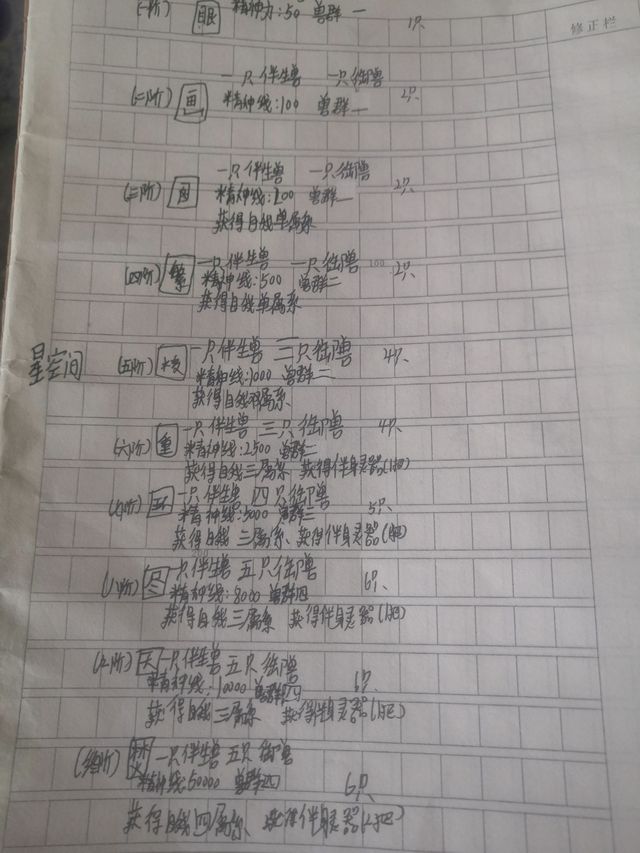 修正栏
(一阶) 眼 精神力:50 兽群一 1只
一只伴生兽 一只御兽
(二阶) 画 精神线:100 兽群一 2只
一只伴生兽 一只御兽
(三阶) 精神线:200 兽群一 2只
获得自线单属系
(四阶) 繁 一只伴生兽 一只御兽 2只
精神线:500 兽群二
获得自线单属系
星空间
(五阶) 核 一只伴生兽 三只御兽 4只
精神线:1000 兽群二
获得自线 属系
一只伴生兽 三只御兽 4只
(六阶) 重 精神线:2500 兽群二
获得自线三属系 获得伴身灵器(1把)
(七阶) 环 一只伴生兽 四只御兽 5只
精神线:5000 兽群三
获得自线三属系、获得伴身灵器(1把)
一只伴生兽 五只御兽
(八阶) 图 精神线:8000 兽群四 6只
获得自线三属系 获得伴身灵器(1把)
(九阶) 天 一只伴生兽 五只御兽
精神线:10000 兽群四 6只
获得自线三属系 获得伴身灵器(1把)
一只伴生兽 五只御兽
精神线:50000 兽群四 6只
获得自线四属系、获得伴身灵器(2把)